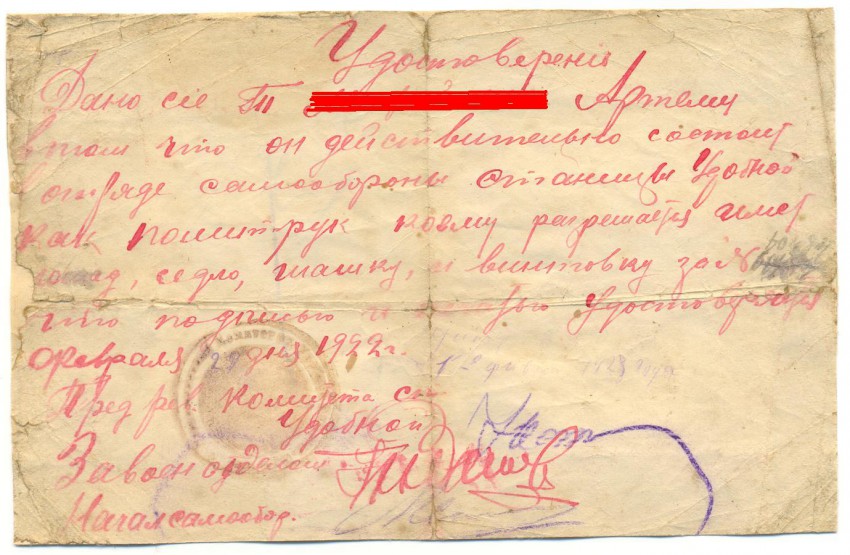 Удостоверение
Дано сіе Тт Артему
в том что он действительно состоит
отряде самообороны станицы Удобной
как политрук коему разрешается имет
лошад, седло, шашку, и винтовку за №
что подписью и удостоверяется
Февраля 29 дня 1922 г.
Пред рев. комитета ст.
Удобной
Завоенотделом
Начал самообор.